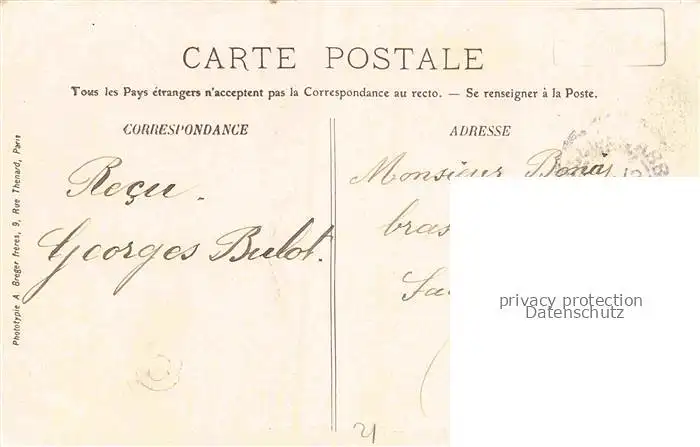 CARTE POSTALE
Tous les Pays étrangers n'acceptent pas la Correspondance au recto. — Se renseigner à la Poste.
CORRESPONDANCE
ADRESSE
Reçu.
Georges Bulot.
Monsieur
bras
Phototypie A. Breger frères, 9, Rue Thenard, Paris
privacy protection
Datenschutz
21